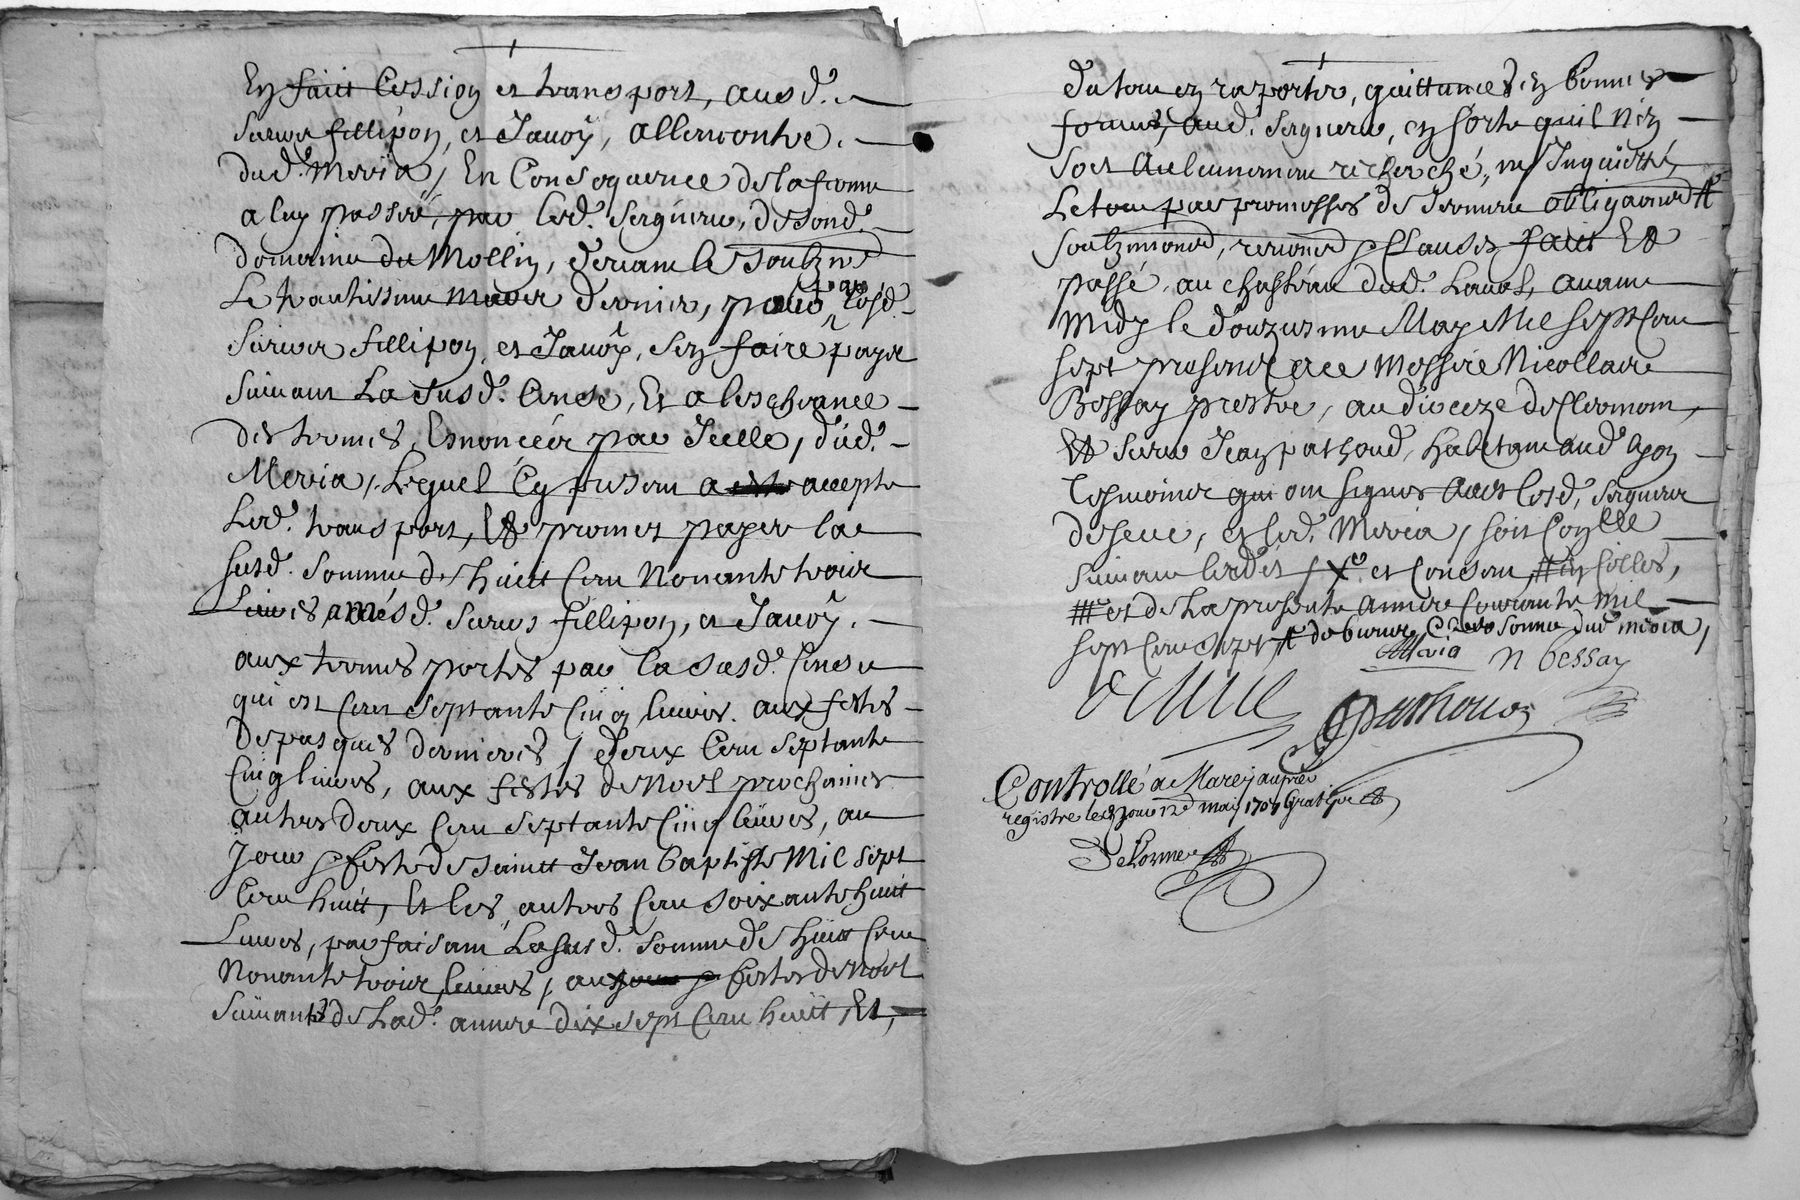 En faict Cession et transport, ausd.
sieurs fillipon, et Jauoy, allencontre.
dud. Mevia, En Consequence de la ferme
a luy passée, par led. seigneur, de sond.
domaine du Mollin, devant le soubzne
Le trantiesme mars dernier, pour, par lesd.
sieurs fillipon, et Jauoy, sen faire payer
suivant La susd. Cense, Et a lescheance
des termes, Esnoncéés par Icelle, dud.
Mevia, Lequel Cy present a accepte
Led. transport, Et promet payer la
susd. somme de huict Cent Nonante trois
Livres ausd. sieurs fillipon, et Jauoy.
aux termes portes par la susd. Cense
qui est Cent septante Cinq livres. aux festes
de pasques dernieres, deux Cent septante
Cinq livres, aux festes de Noel prochaines
autres deux Cent septante Cinq livres, au
Jour & feste de sainct Jean Baptiste Mil sept
Cent huict, Et les autres Cent soixante huict
Livres, parfaisant La susd. somme de huict Cent
Nonante trois livres, aux festes de Noel
suivante de Lad. année dix sept Cent huict, Et,
du tout en raporter, quittances en bonnes
formes, aud. seigneur, en sorte quil nen
soit aulcunement recherché, ny Inquietté,
Le tout par promesses de serment obligations
soubzmions, renons & Clauses faict Et
passé, au chasteau dud. Laval, avant
midy le douziesme May Mil sept Cent
sept presents a ce Messire Nicollas
Bessay prestre, au dioceze de Clermont,
Et sieur Jean pathoud, habitant aud. lyon
tesmoins qui ont signes avec lesd. seigneur
de seve, et led. Mevia, soit Conlle
suivant lesdit, Xe et Consent, en Celles,
et de La presente année Courante mil
sept Cent sept, de bonne Cense somme dud mevia,
Mevia n bessay
De seve
Pathoud
Controllé a Marcy au pre
registre le jour 12e may 1707 Gratis
Delorme